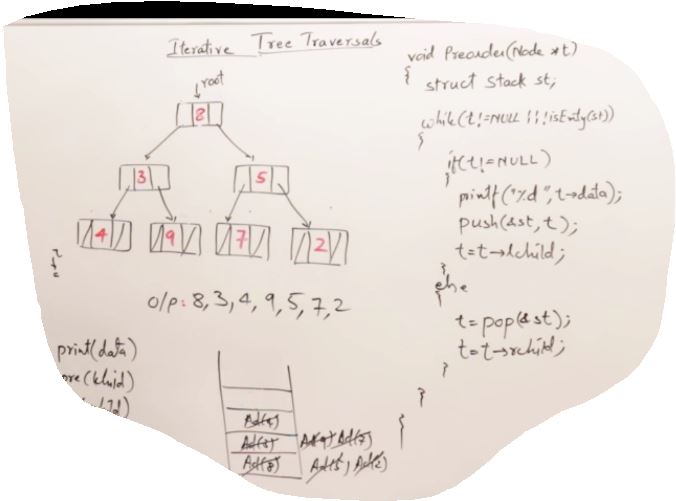 Iterative Tree Traversals
root
8
3 5
4 9 7 2
o/p: 8, 3, 4, 9, 5, 7, 2
print(data)
void Preorder(Node *t)
{
struct Stack st;
while(t!=NULL ||!isEmty(st))
{
if(t!=NULL)
{
printf("%d", t→data);
push(&st, t);
t=t→lchild;
}
else
{
t=pop(&st);
t=t→rchild;
}
}
}